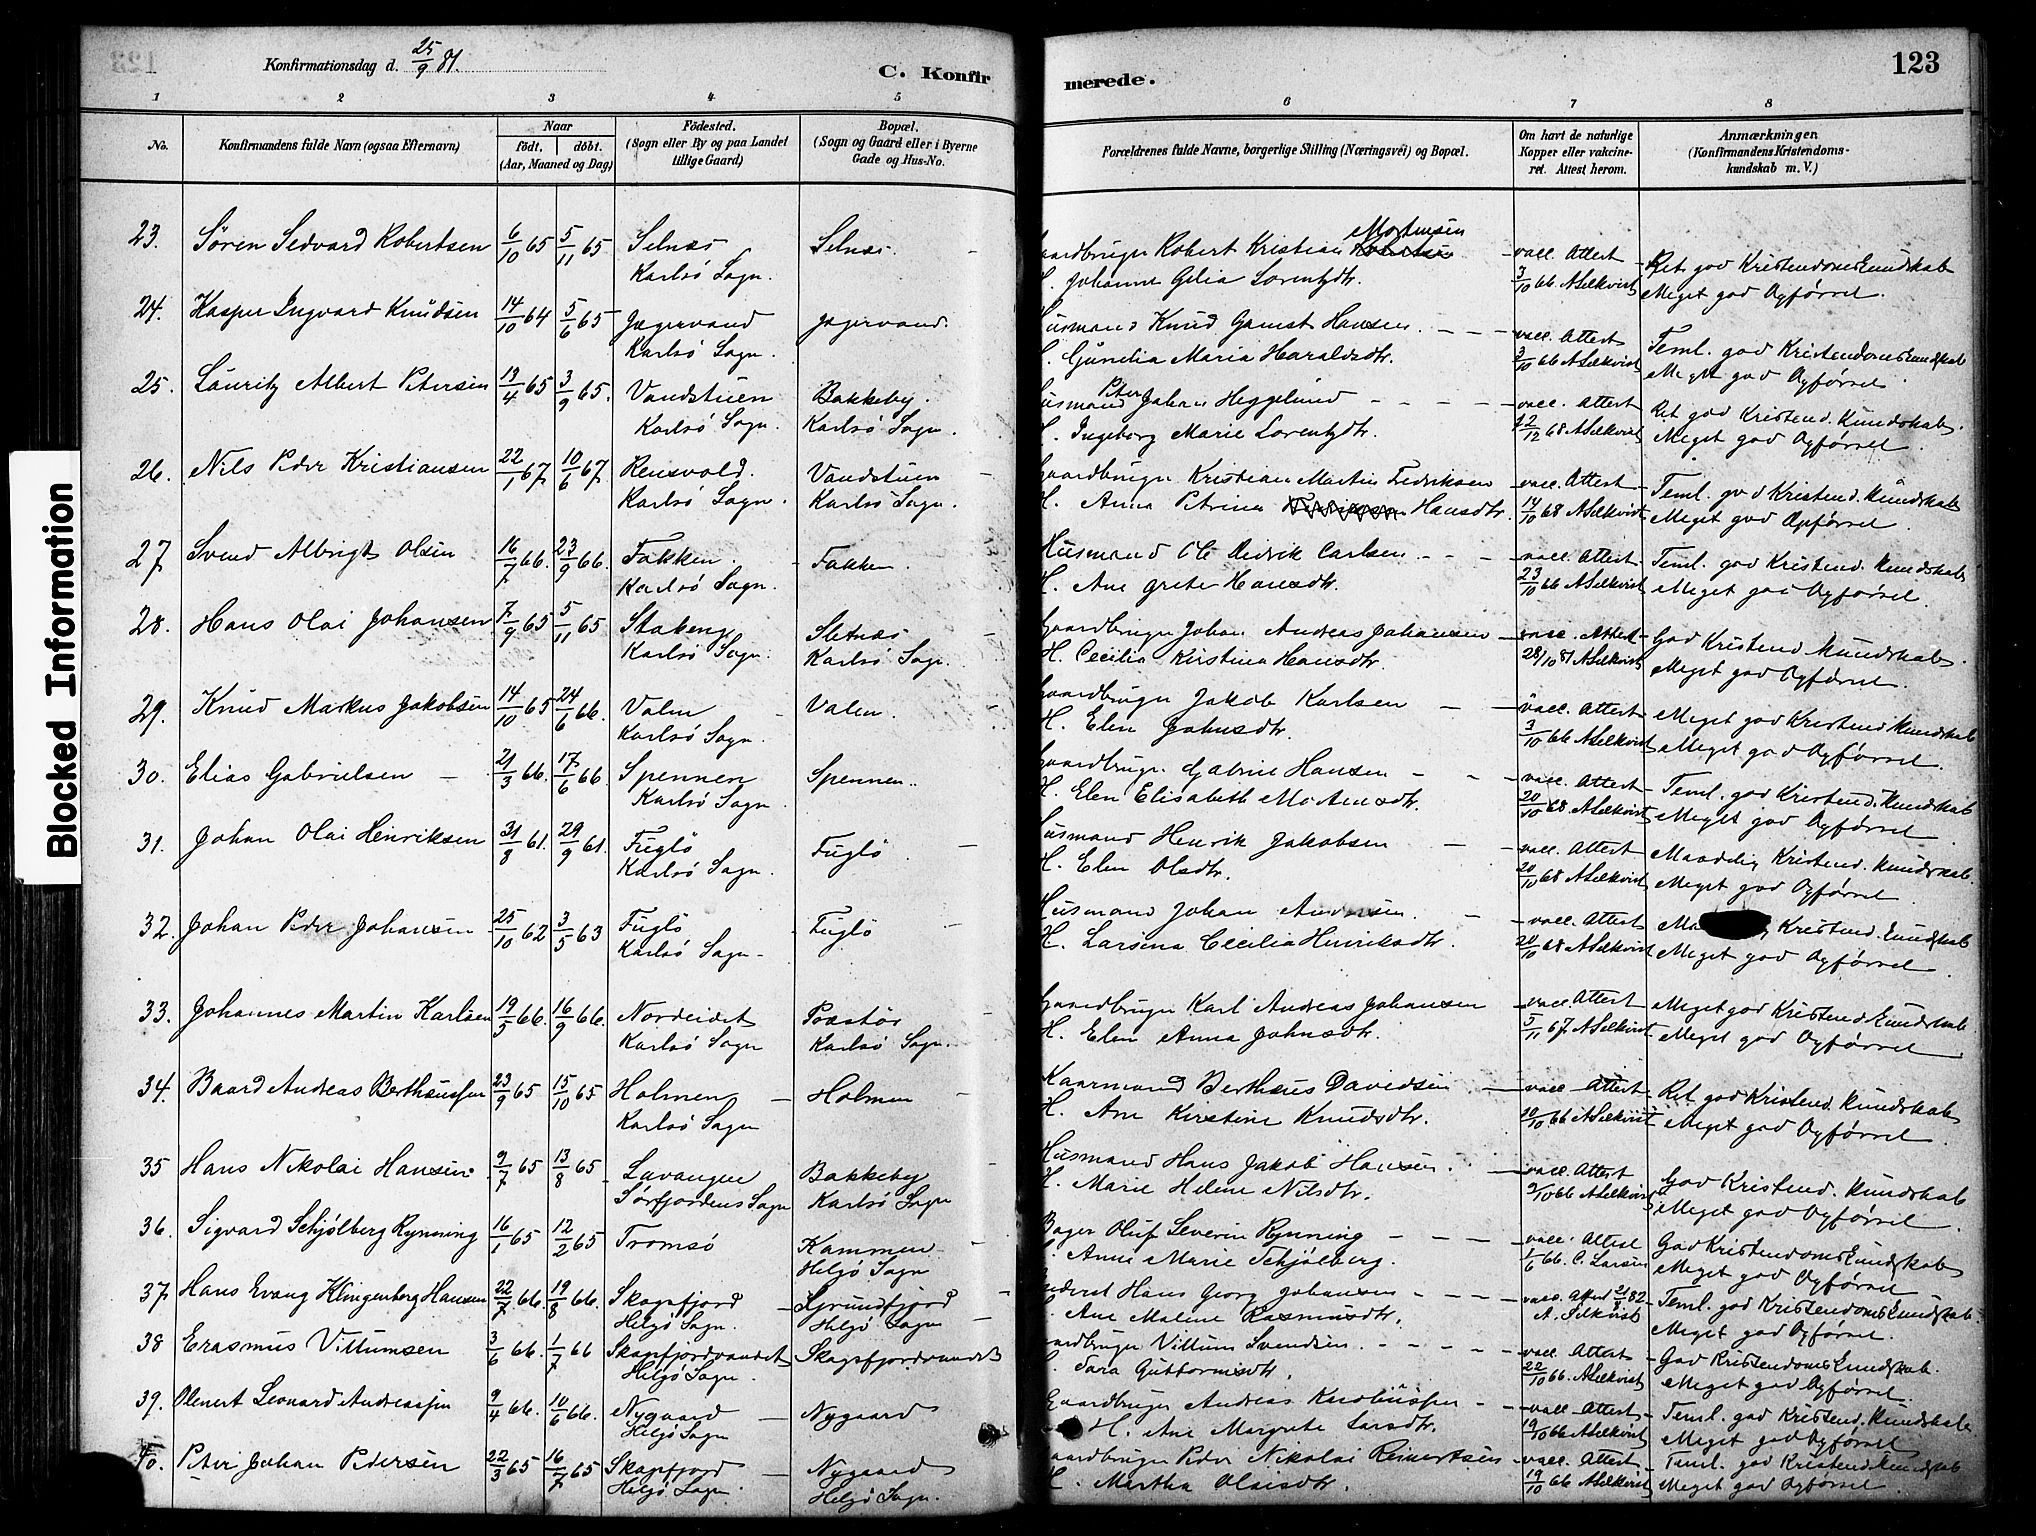 Konfirmationsdag d. 25/9 81.
C. Konfirmerede.
123
1 2 3 4 5 6 7 8
No. Konfirmandens fulde Navn (ogsaa Efternavn) Naar födt. döbt. (Aar, Maaned og Dag) Födested. (Sogn eller By og paa Landet tillige Gaard) Bopæl. (Sogn og Gaard eller i Byerne Gade og Hus-No. Forældrenes fulde Navne, borgerlige Stilling (Næringsvei) og Bopæl. Om havt de naturlige Kopper eller vakcineret. Attest herom. Anmærkningen (Konfirmandens Kristendomskundskab m. V.)
23. Sören Sedvard Robertsen 6/10 65 5/11 65 Selnæs Selnæs. aardbruger Robert Kristian Mortensen vacc. Attest Ret god Kristendomskundskab
Karlsö Sogn. Johanna Gilia Lorentzdtr. 3/10 66 ASelkvist Meget god Opförsel.
24. Kasper Ingvard Knudsen 14/10 64 5/6 65 Jægervand Jægervand. usmand Knud Gamst Hansen vacc. Attest Teml. god Kristendomskundskab
Karlsö Sogn. Gunelia Maria Haraldsdtr. 3/10 66 ASelkvist Meget god Opförsel.
25. Lauritz Albert Petersen 13/4 65 3/9 65. Vandstuen Bakkeby. usmand Peter Johan Heggelund vacc. Attest Ret god Kristend. Kundskab.
Karlsö Sogn. Karlsö Sogn. Ingeborg Marie Lorentzdtr. 12/12 68 ASelkvist Meget god Opförsel.
26. Nils Peder Kristiansen 22/1 67 10/6 67 Rensvold. Vandstuen aardbruger Kristian Martin Fedriksen vacc. Attest Teml. god Kristend. Kundskab
Karlsö Sogn. Karlsö Sogn. H. Anna Petrina Hansdtr. 14/10 68 ASelkvist Meget god Opförsel.
27 Svend Albrigt Olsen 16/7 66. 23/9 66. Fakken. Fakken. Husmand Ole Didrik Carlsen vacc. Attest Teml. god Kristend. Kundskab
Karlsö Sogn. H. Ane Grete Hansdtr. 23/10 66 ASelkvist Meget god Opförsel.
28. Hans Olai Johansen 7/9 65 5/11 65 Stakenes Sletnæs aardbruger Johan Andreas Johansen vacc. Attest God Kristend. Kundskab.
Karlsö Sogn. Karlsö Sogn. H. Cecilia Kirstina Hansdtr. 28/10 81 ASelkvist Meget god Opförsel.
29. Knud Markus Jakobsen 14/10 65 24/6 66. Valen Valen. aardbruger Jakob Karlsen vacc. Attest Meget god Kristend. Kundskab
Karlsö Sogn. H. Elen Johnsdtr. 3/10 66 ASelkvist Meget god Opförsel.
30. Elias Gabrielsen 21/3 66. 17/6 66 Spennen Spennen. aardbruger Gabriel Hansen vacc. Attest Teml. god Kristend. Kundskab
Karlsö Sogn. H. Elen Elisabeth Mortensdtr. 20/10 68 ASelkvist Meget god Opförsel
31. Johan Olai Henriksen 31/8 61. 29/9 61. Fuglö Fuglö usmand Henrik Jakobsen vacc. Attest Maadelig Kristend. Kundskab.
Karlsö Sogn. H. Elen Olsdtr. 20/10 68 ASelkvist Meget god Opförsel
32. Johan Peder Johansen 25/10 62 3/5 63 Fuglö Fuglö Husmand Johan Andersen. vacc. Attest Kristend. Kundskab
Karlsö Sogn H. Larsina Cecilia Henriksdtr. 20/10 68 ASelkvist Meget god Opförsel
33. Johannes Martin Karlsen 19/5 66. 16/9 66. Nordeidet aardbruger Karl Andreas Johansen vacc. Attest Meget god Kristend. Kundskab.
Karlsö Sogn Karlsö Sogn. H. Elen Anna Johnsdtr. 5/11 67 ASelkvist Meget god Opförsel
34. Baard Andreas Bertheussen 23/9 65 15/10 65 Holmen Holmen Kaarmand Bertheus Davidsen vacc. Attest Ret god Kristend. Kundskab
Karlsö Sogn H. Ane Kirstine Knudsdtr. 10/10 66 ASelkvist Meget god Opförsel
35 Hans Nikolai Hansen. 9/7 65 13/8 65 Lavangen Bakkeby Husmand Hans Jakob Hansen. vacc. Attest God Kristend. Kundskab
Sörfjordens Sogn Karlsö Sogn H. Marie Helene Nilsdtr. 9/10 66 ASelkvist Meget god Opförsel.
36. Sigvard Schjölberg Rynning 16/1 65 12/2 65 Tromsö Kammen Bager Oluf Severin Rynning vacc. Attest God Kristendomskundskab
Helgö Sogn Anne Marie Schjölberg. 1/6 66. C. Larsen Meget god Opförsel
37. Hans Evang Klingenberg Hansen 22/7 66. 19/8 66. Skogsfjord Grundfjord Hans Georg Johansen vacc. Attest 21/8 82 Teml. god Kristendomskundskab.
Helgö Sogn. Helgö Sogn Ane Malene Rasmusdtr. A. Selkvist Meget god Opförsel
38 Erasmus Vittumsen 3/6 66. 1/7 66 Skogsfjordvandet Skogsfjordvandet aardbruger Vittum Svendsen. vacc. Attest God Kristendomskundskab.
Helgö Sogn. Sara Guttormsdtr. 22/10 66. ASelkvist Meget god Opförsel
39. Olenert Leonard Andreassen 9/4 66. 10/6 66. Nygaard Nygaard aardbruger Andreas Kardeussen vacc. Attest Teml. god Kristend. Kundskab
Helgö Sogn H. Ane Margrete Larsdtr. 19/10 66 ASelkvist Meget god Opförsel
40. Peter Johan Pedersen 22/3 65 16/7 65 Skogsfjord Nygaard aardbruger Peder Nikolai Reinertsen vacc. Attest Teml. god Kristend. Kundskab
Helgö Sogn Helgö Sogn. H. Martha Olaisdtr. 19/10 66 ASelkvist Meget god Opförsel
Blocked Information